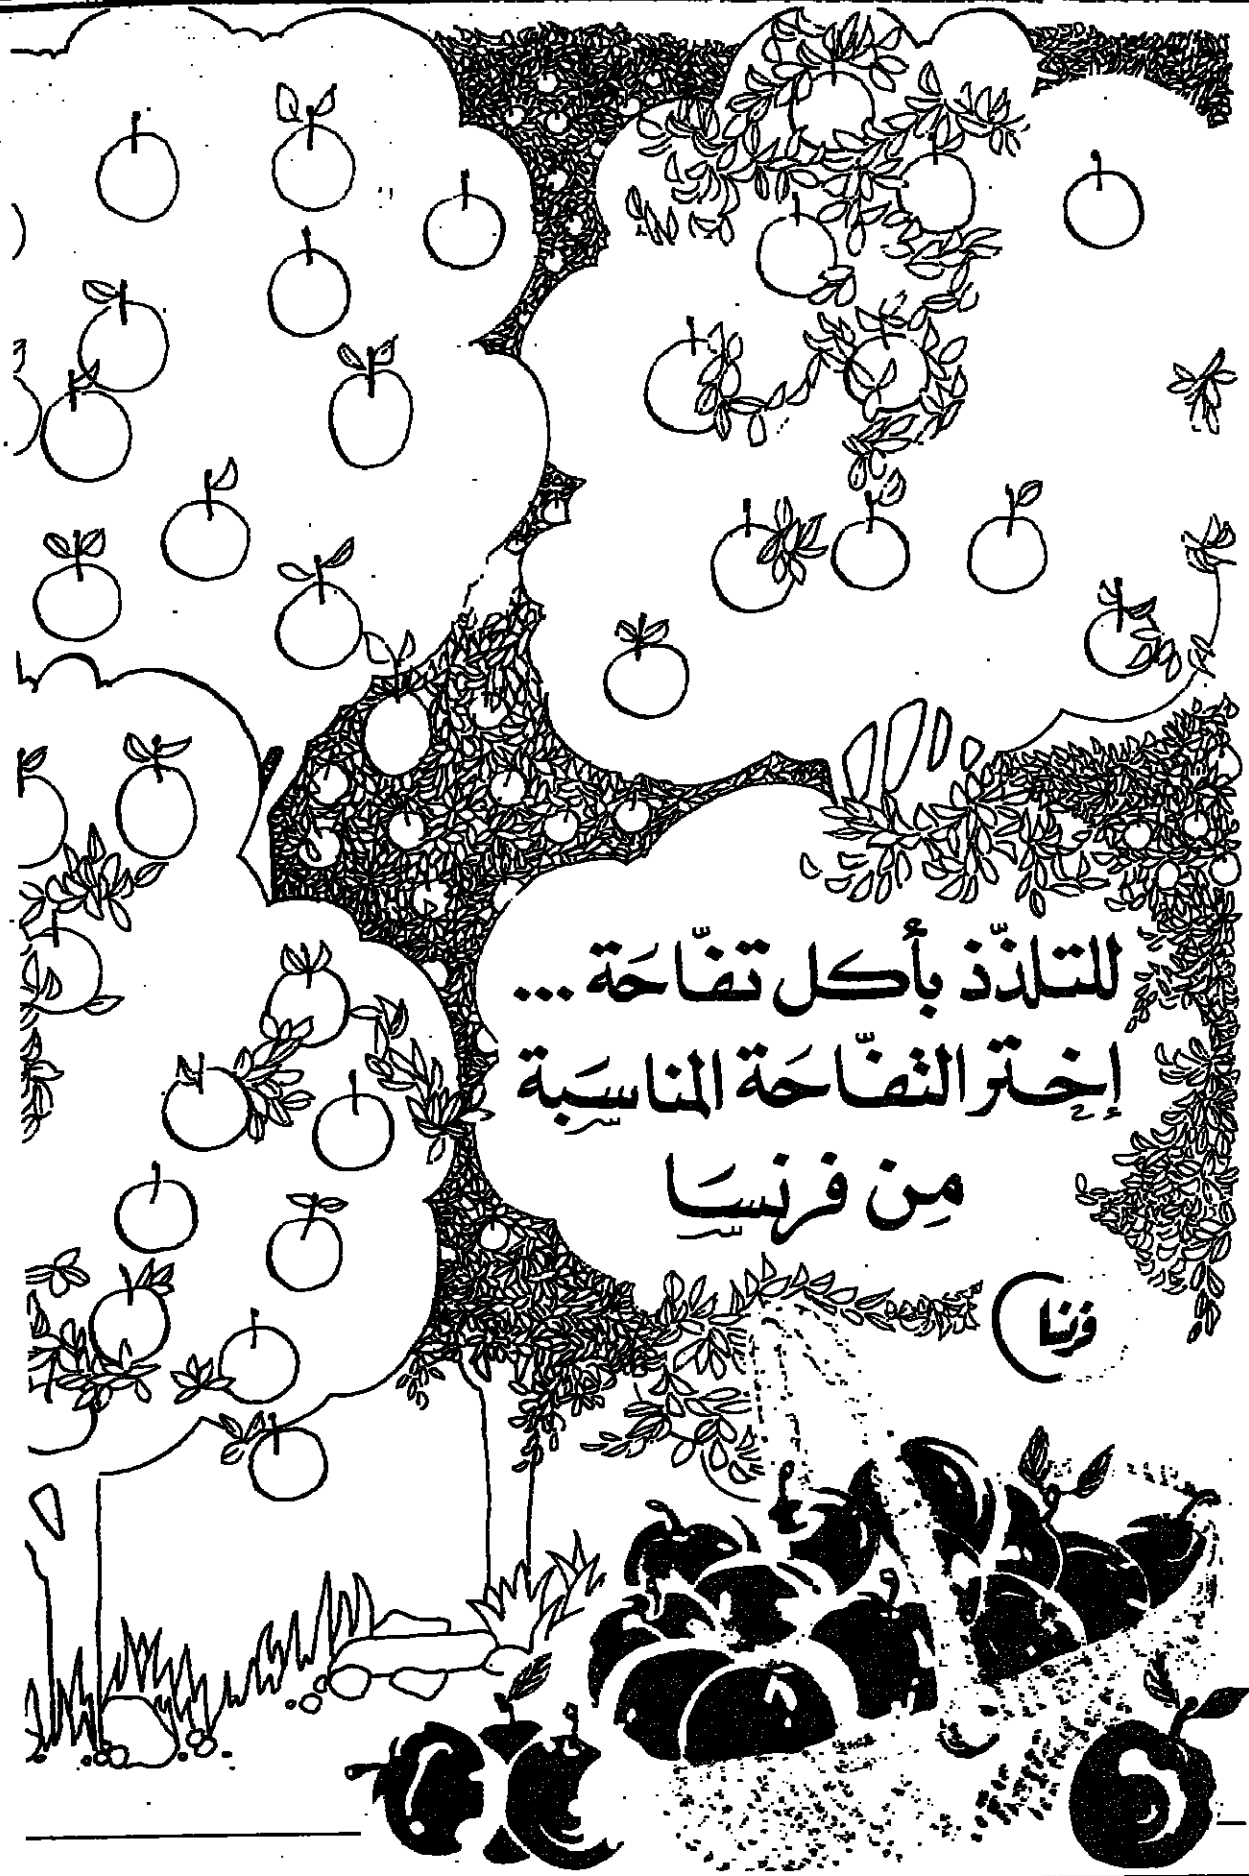 للتلذّذ بأكل تفّاحَة ...
إختر التفّاحَة المناسَبة
مِن فرنسَا
فرنسا